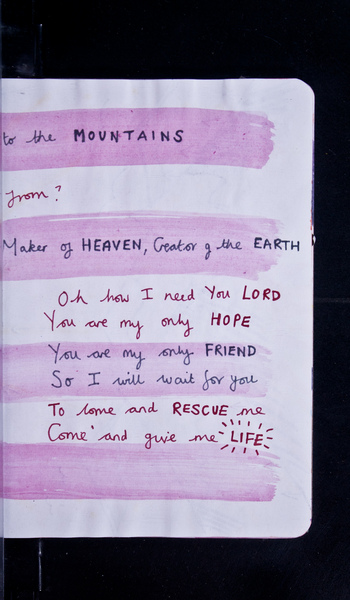 to the MOUNTAINS
from?
Maker of HEAVEN, Creator of the EARTH
Oh how I need You LORD
You are my only HOPE
You are my only FRIEND
So I will wait for you
To come and RESCUE me
Come and give me LIFE